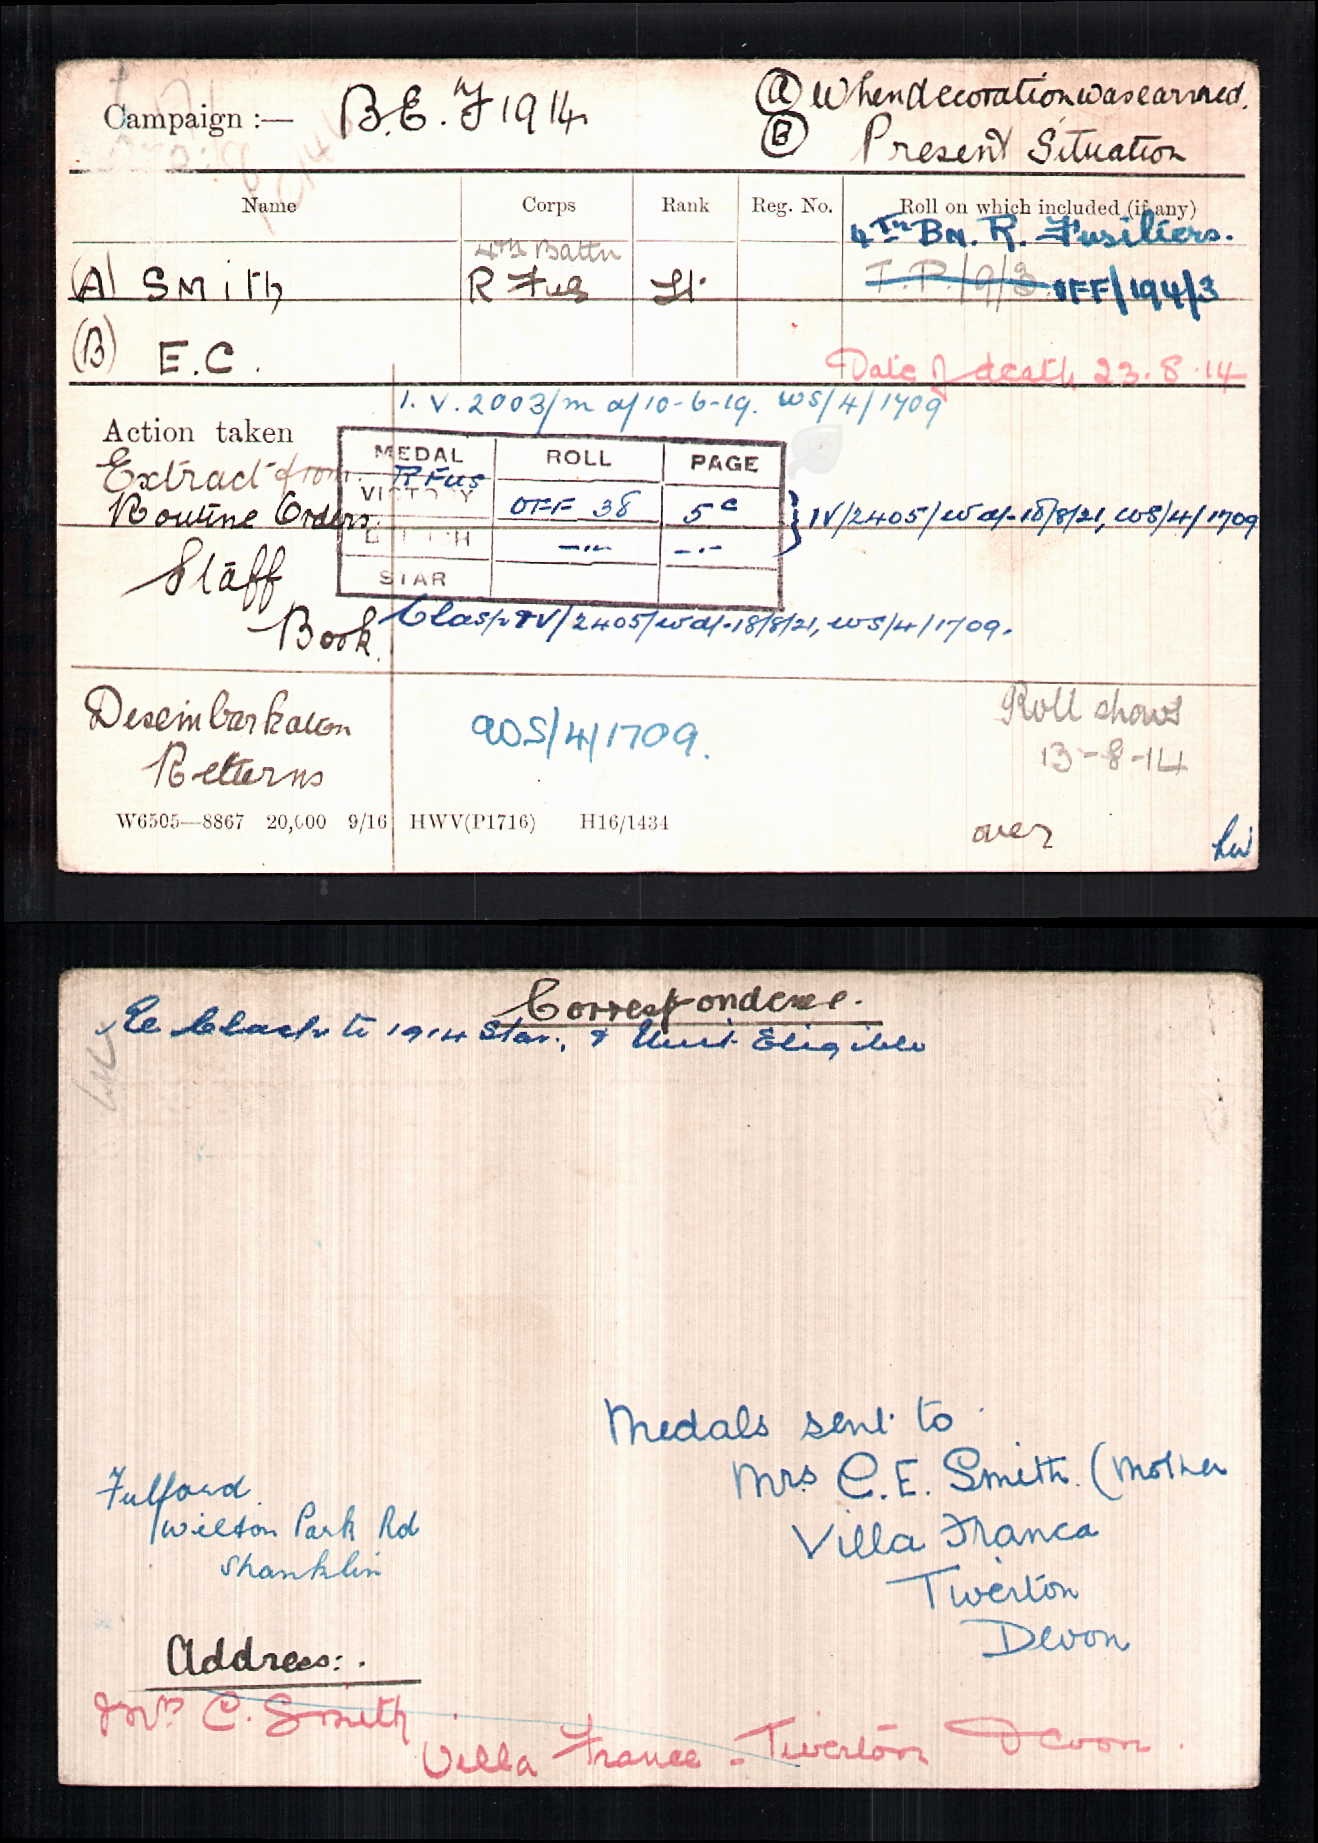 Campaign :— B.E.F 1914
(A) When decoration was earned.
(B) Present Situation
Name Corps Rank Reg. No. Roll on which included (if any)
4th Bn. R. Fusiliers.
4th Battn
(A) SMith R Fus Lt. I.P./9/3 OFF/194/3
(B) E.C.
Date of death 23.8.14
I.V. 2003/m d/10-6-19. WS/4/1709
Action taken
Extract from
Routine Orders
Staff
Book
MEDAL ROLL PAGE
R Fus
VICTORY OFF 38 5c
BRITISH —"— —"—
STAR
} IV/2405/W d/-18/8/21, WS/4/1709
Clasp IV/2405/W d/-18/8/21, WS/4/1709.
Disembarkation
Returns
WS/4/1709.
Roll shows
13-8-14
W6505—8867 20,000 9/16 HWV(P1716) H16/1434
over
Correspondence.
Re Clasp to 1914 Star, & Unit Eligible
Medals sent to
Mrs C.E. Smith. (Mother
Villa Franca
Tiverton
Devon
Fulford.
Wilton Park Rd
Shanklin
Address:.
Mrs C. Smith
Villa France - Tiverton Devon.